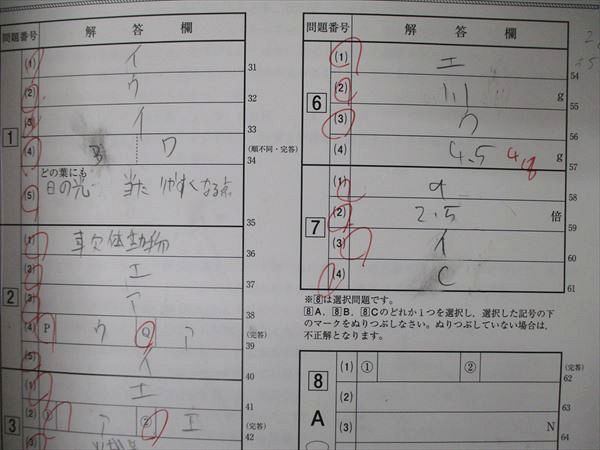 問題番号 解答欄
1
(1) イ 31
(2) ウ 32
(3) イ 33
(4) B ウ (順不同・完答) 34
どの葉にも
(5) 日の光 当たりやすくなる点 35
2
(1) 軟体動物 36
(2) エ 37
(3) ア 38
(4) P ウ Q ア (完答) 39
(5) イ 40
3
(1) エ 41
(2) ① ア ② エ (完答) 42
(3)
問題番号 解答欄
6
(1) エ 54
(2) 1.1 g 55
(3) ウ 56
(4) 4.5 g 4.8 57
7
(1) 58
(2) 2.5 倍 59
(3) イ 60
(4) C 61
※8は選択問題です。
8A，8B，8Cのどれか1つを選択し，選択した記号の下
のマークをぬりつぶしなさい。ぬりつぶしていない場合は，
不正解となります。
8
A
(1) ① ② (完答) 62
(2) 63
(3) N 64